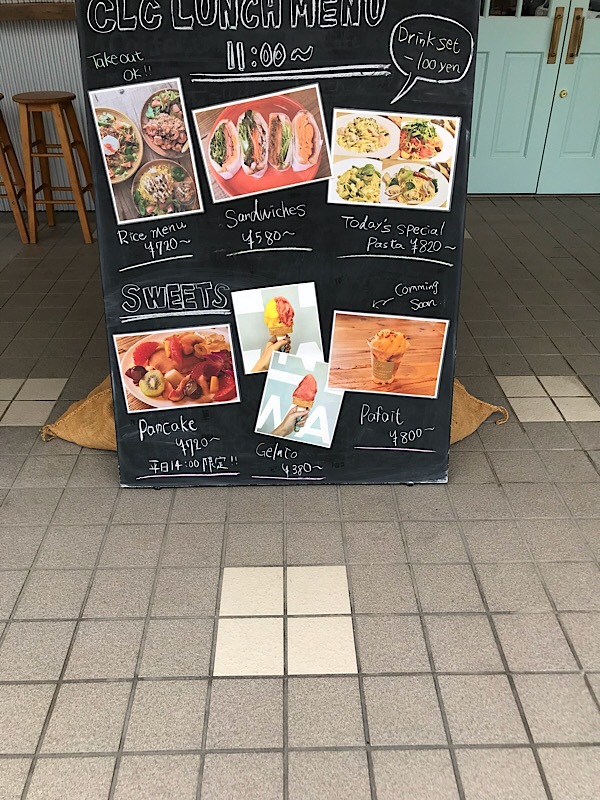 CLC LUNCH MENU
11:00~
Take out
OK!!
Drink set
-100yen
Rice menu
¥720~
Sandwiches
¥580~
Today's special
Pasta ¥820~
SWEETS
Comming
Soon..
Pancake
¥720~
平日14:00限定!!
Gelato
¥380~
Pafait
¥800~